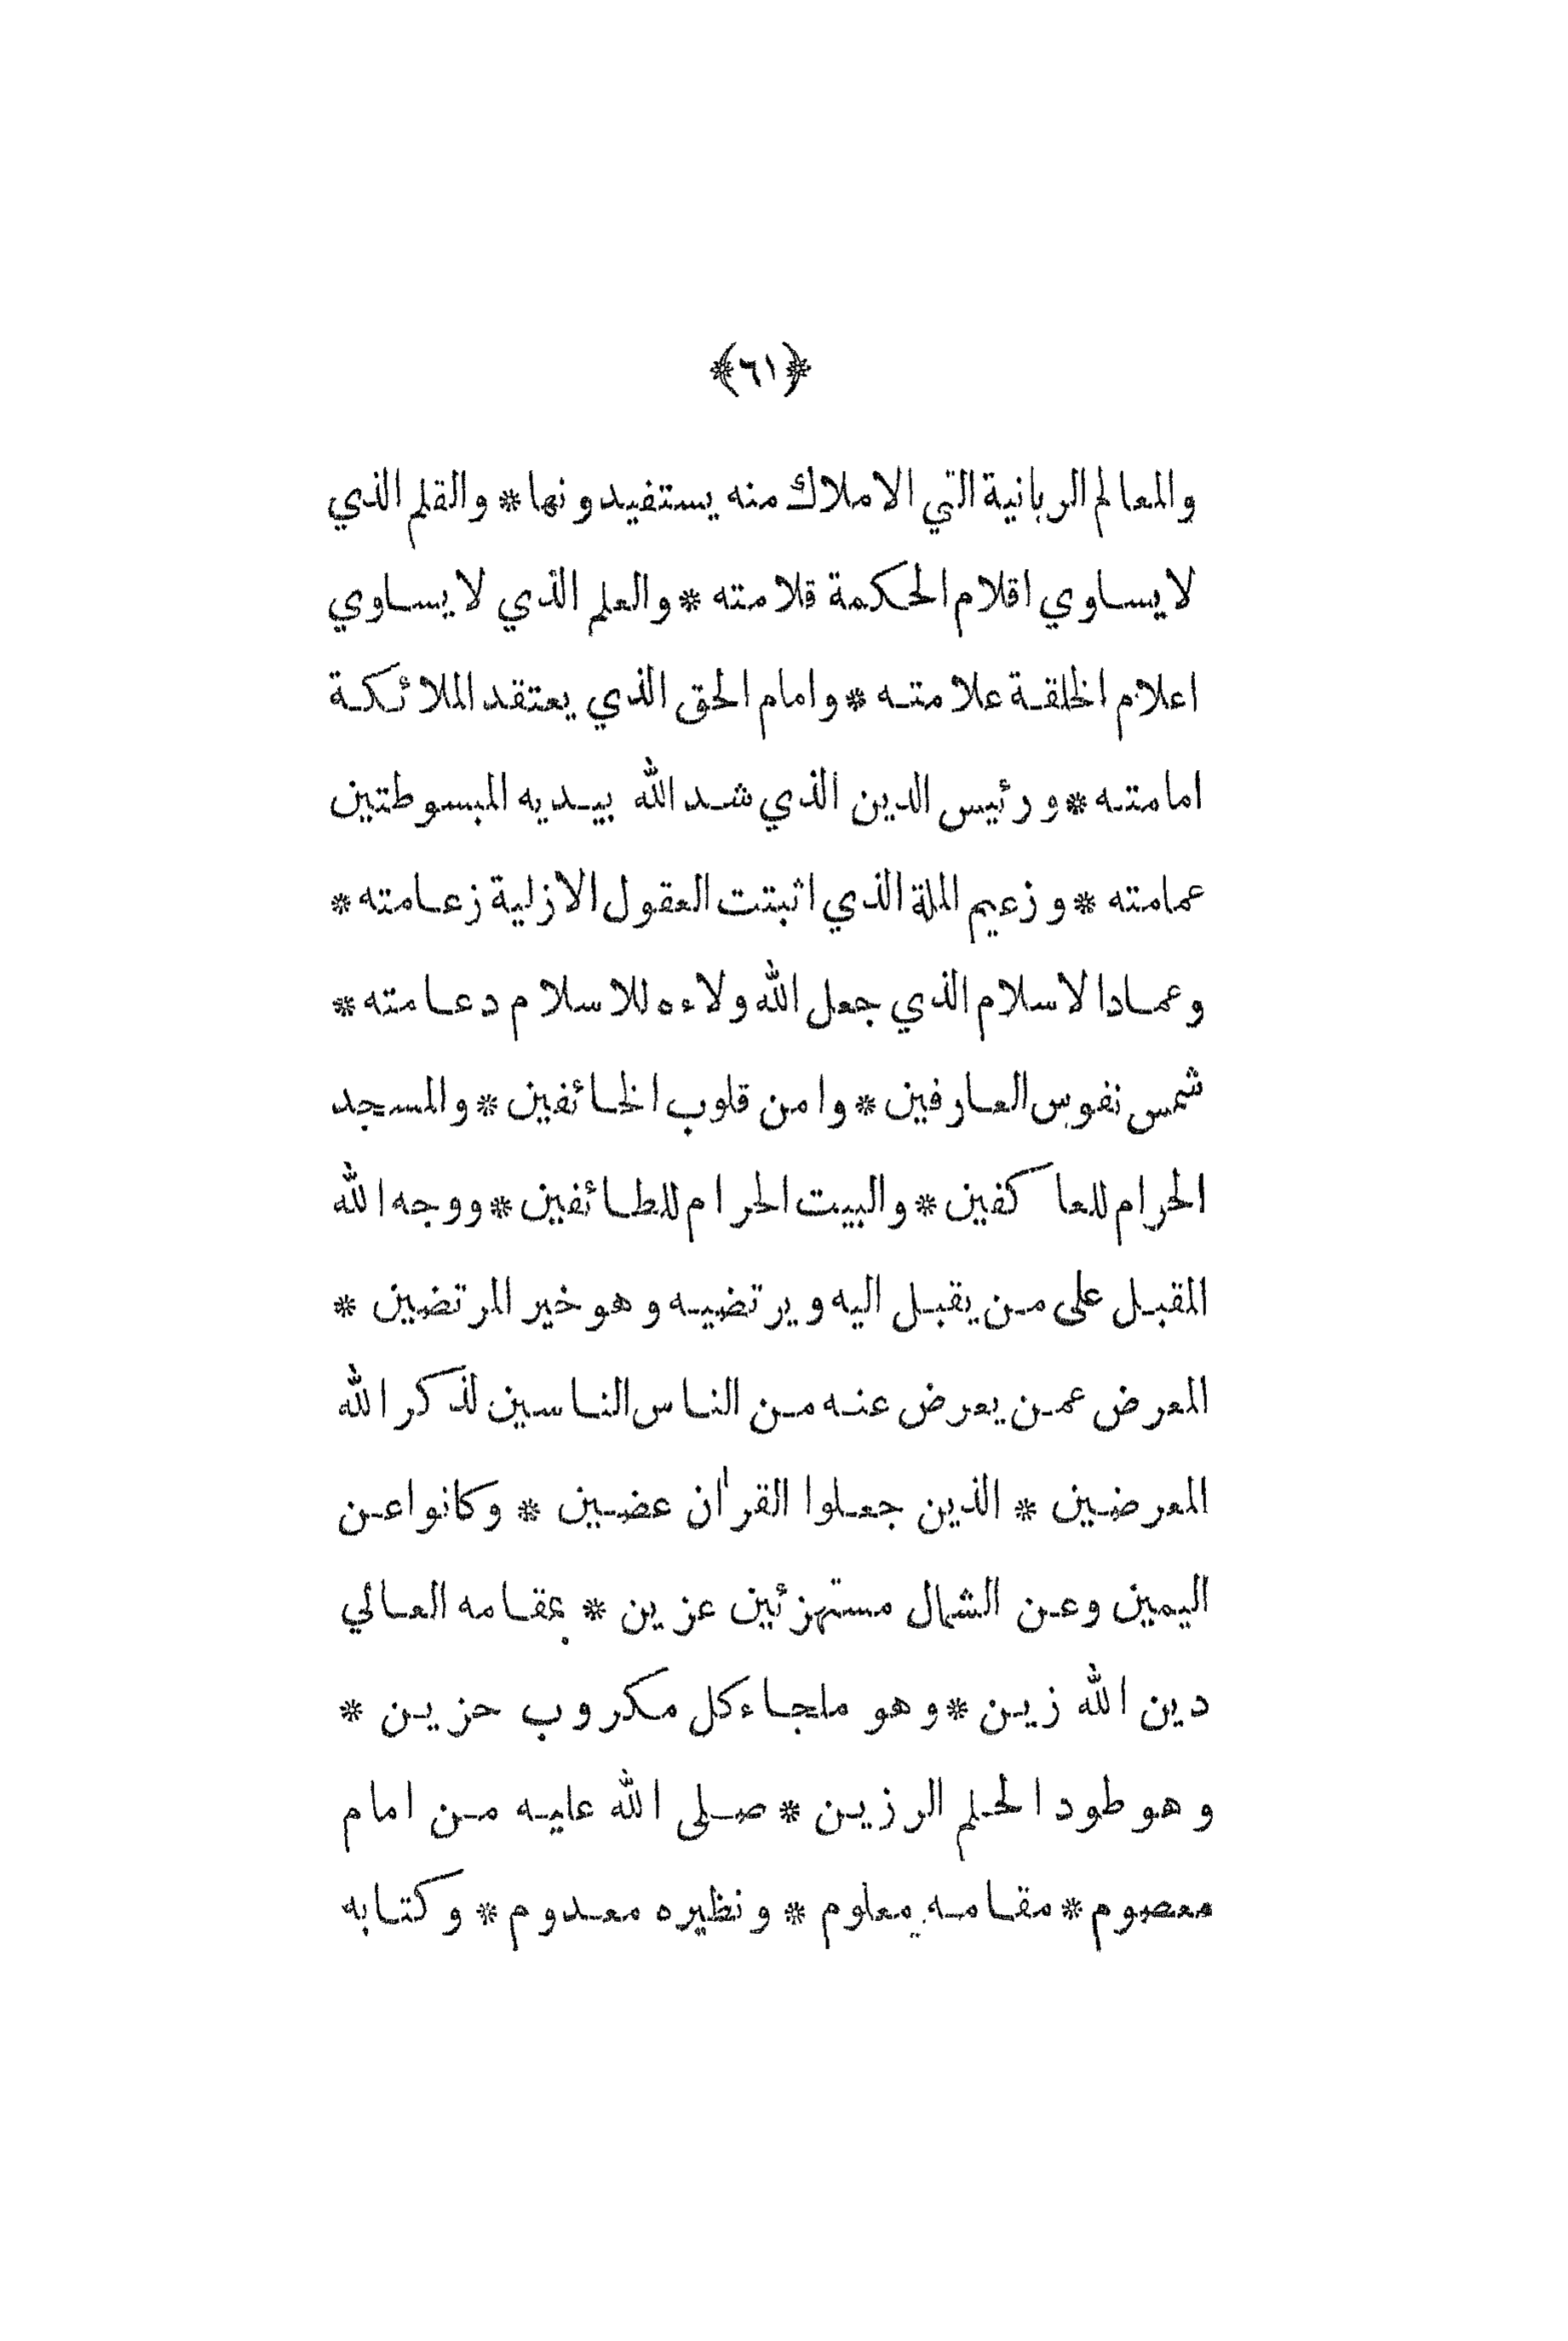 ﴿٦١﴾
والمعالم الربانية التي الاملاك منه يستفيدونها * والقلم الذي
لا يساوي اقلام الحكمة قلامته * والعلم الذي لا يساوي
اعلام الخلقة علامته * وامام الحق الذي يعتقد الملائكة
امامته * ورئيس الدين الذي شد الله بيديه المبسوطتين
عمامته * وزعيم الملة الذي اثبتت العقول الازلية زعامته *
وعماد الاسلام الذي جعل الله ولاءه للاسلام دعامته *
شمس نفوس العارفين * وامن قلوب الخائفين * والمسجد
الحرام للعاكفين * والبيت الحرام للطائفين * ووجه الله
المقبل على من يقبل اليه ويرتضيه وهو خير المرتضين *
المعرض عمن يعرض عنه من الناس الناسين لذكر الله
المعرضين * الذين جعلوا القرآن عضين * وكانوا عن
اليمين وعن الشمال مستهزئين عزين * بمقامه العالي
دين الله زين * وهو ملجاء كل مكروب حزين *
وهو طود الحلم الرزين * صلى الله عليه من امام
معصوم * مقامه معلوم * ونظيره معدوم * وكتابه